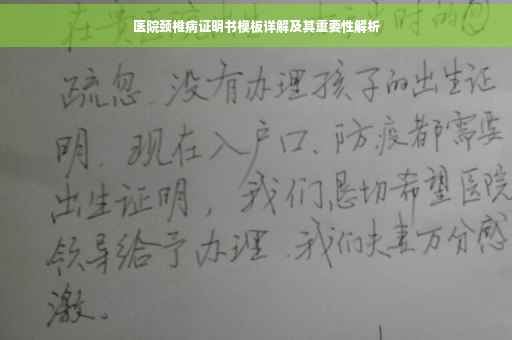 医院颈椎病证明书模板详解及其重要性解析
在贵医院 时的
疏忽、没有办理孩子的出生证
明、现在入户口、防疫都需要
出生证明，我们恳切希望医院
领导给予办理、我们夫妻万分感
激。